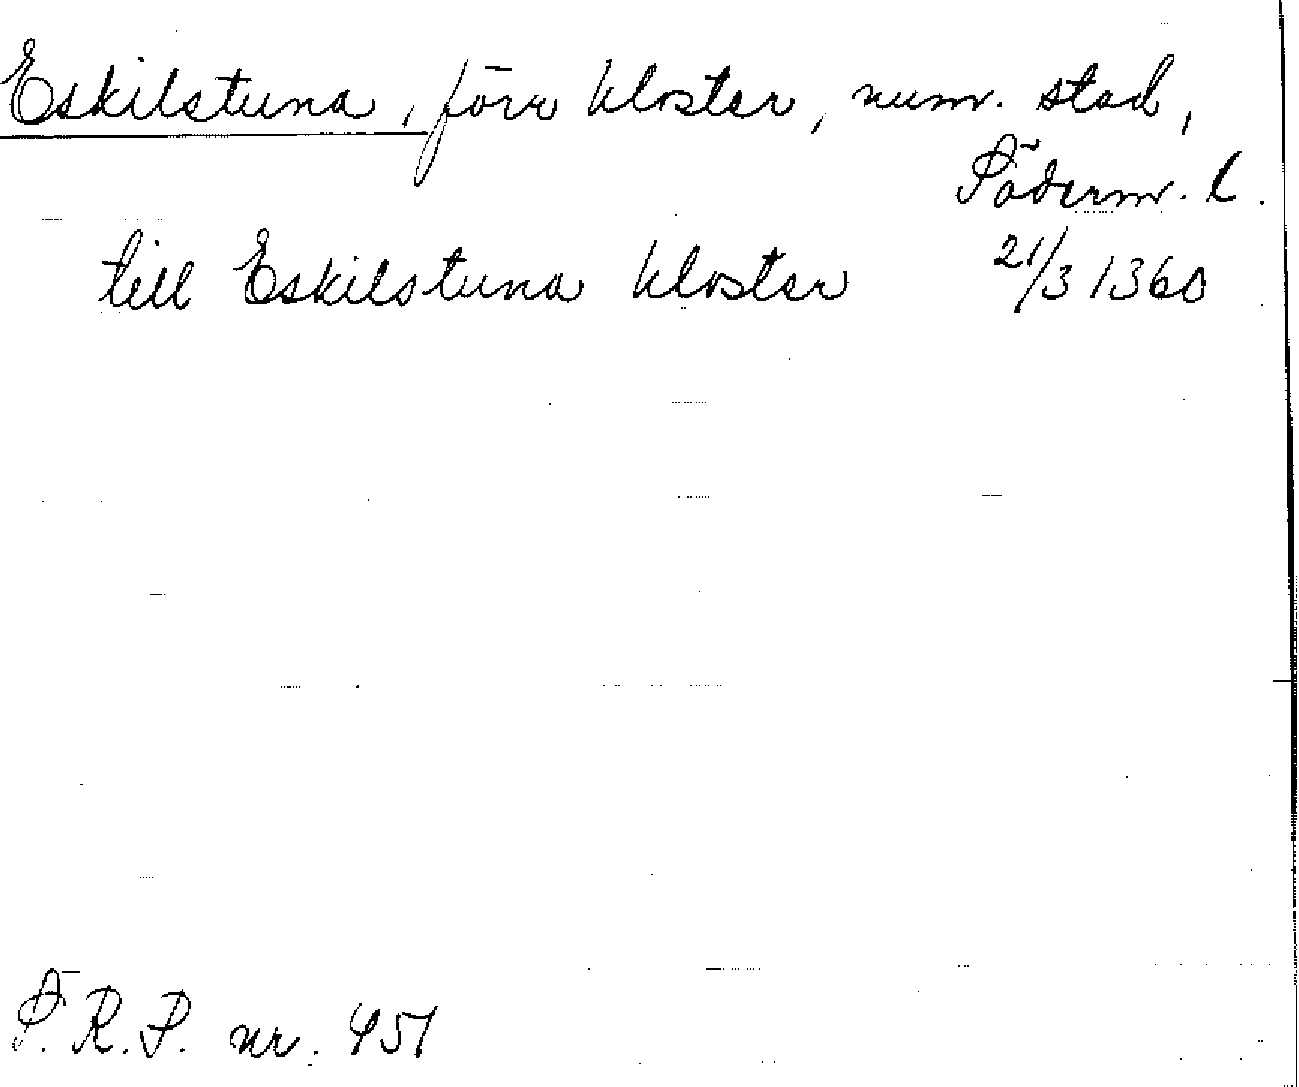 Eskilstuna, förr kloster, num. stad,
Söderm. l.
till Eskilstuna kloster 21/3 1360
S.R.P. nr. 451